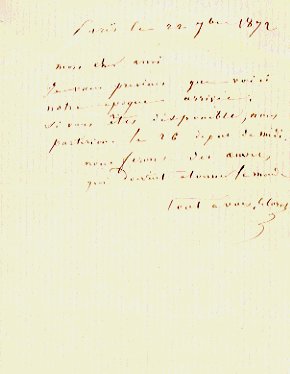 Paris le 22 7bre 1872
mon cher ami
Je vous préviens que voici
notre époque arrivée.
Si vous êtes disponible, nous
partirons le 26 départ de midi.
nous ferons des
qui devront étonner le monde
tout à vous,